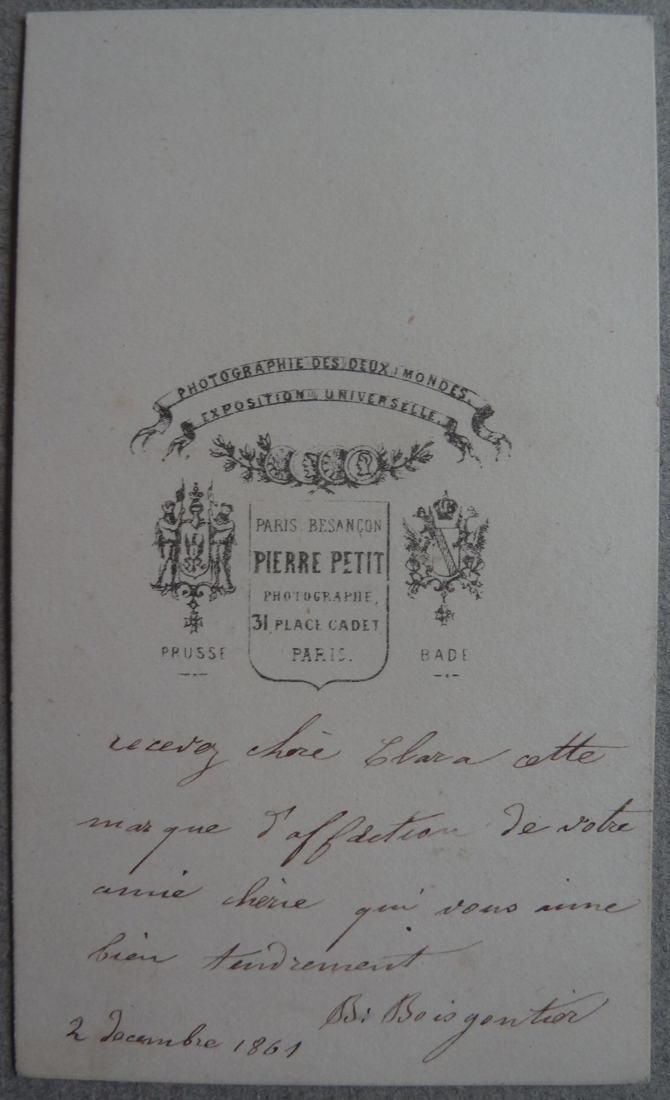 PHOTOGRAPHIE DES DEUX MONDES.
EXPOSITION UNIVERSELLE.
PARIS BESANÇON
PIERRE PETIT
PHOTOGRAPHE,
31, PLACE CADET
PARIS.
PRUSSE
BADE
recevez chère Clara cette
marque d'affection de votre
amie chérie qui vous aime
bien tendrement
B. Boisgontier
2 decembre 1861